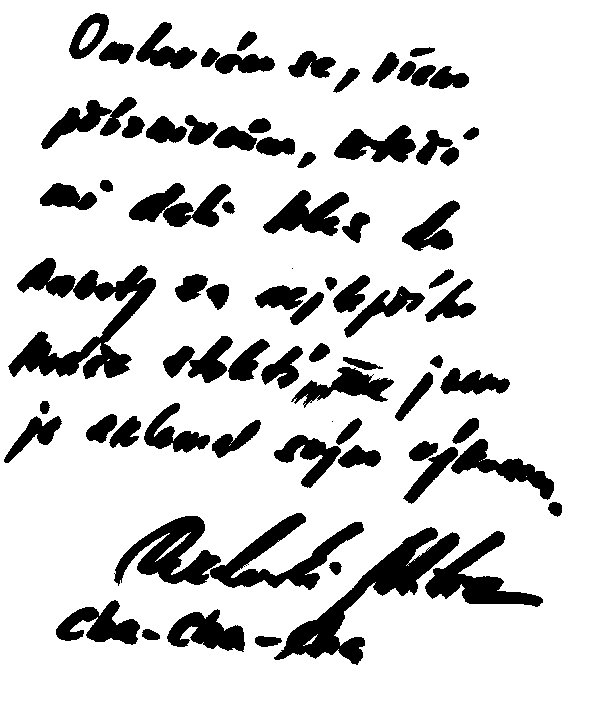 Omlouvám se, všem
příznivcům, kteří
mi dali hlas do
ankety za nejlepšího
hráče století, že jsem
je zklamal svým výkonem.
Cha-Cha-Cha